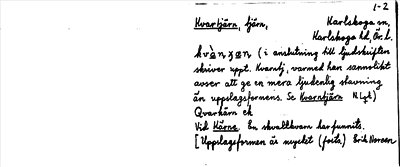 1-2
Kvartjärn, tjärn, Karlskoga sn,
Karlskoga hd, Ör. l.
(i anslutning till ljudskriften
skriver uppt. Kvarntj, varmed han sannolikt
avser att ge en mera ljudenlig stavning
än uppslagsformens. Se Kvarntjärn
Qvarkärn ek
Vid Kärne En skvaltkvarn har funnits.
[Uppslagsformen är mycket (foets.) Erik Noreen